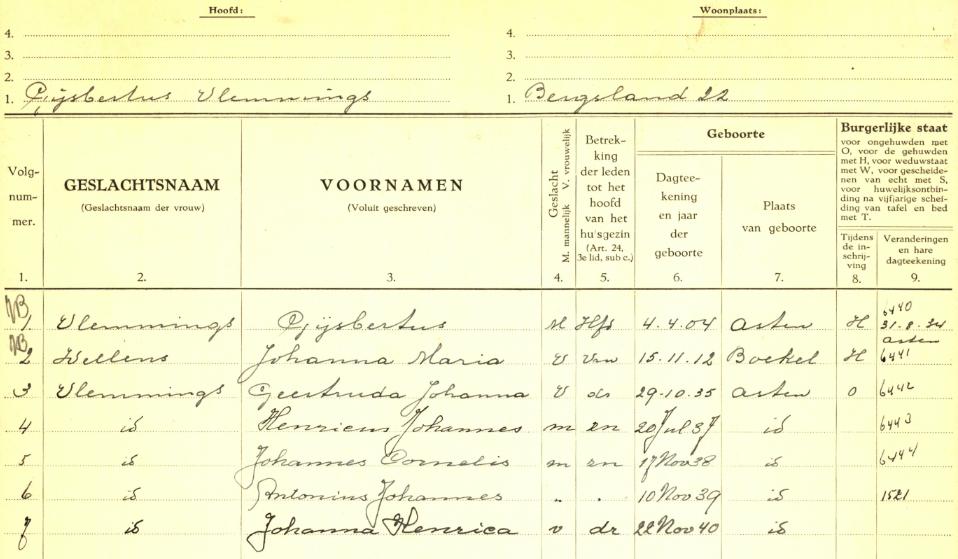 Hoofd: Woonplaats:
4. 4.
3. 3.
2. 2.
1. Gijsbertus Vlemmings 1. Bergsland 22
Volg-
num-
mer.
1.
GESLACHTSNAAM
(Geslachtsnaam der vrouw)
2.
VOORNAMEN
(Voluit geschreven)
3.
Geslacht
M. mannelijk V. vrouwelijk
4.
Betrek-
king
der leden
tot het
hoofd
van het
huisgezin
(Art. 24,
3e lid, sub c.)
5.
Geboorte
Dagtee-
kening
en jaar
der
geboorte
6.
Plaats
van geboorte
7.
Burgerlijke staat
voor ongehuwden met
O, voor de gehuwden
met H, voor weduwstaat
met W, voor gescheide-
nen van echt met S,
voor huwelijksontbin-
ding na vijfjarige schei-
ding van tafel en bed
met T.
Tijdens
de in-
schrij-
ving
8.
Veranderingen
en hare
dagteekening
9.
6440
1 Vlemmings Gijsbertus M Hfd 4.4.04 Asten H 31.8.34
Asten
2 Wellens Johanna Maria V Vrw 15.11.12 Boekel H 6441
3 Vlemmings Geertruda Johanna V dr 29-10.35 Asten O 6442
4 id Henricus Johannes m zn 20 Jul 37 id 6443
5 id Johannes Cornelis m zn 17 Nov 38 id 6444
6 id Antonius Johannes " " 10 Nov 39 id 1521
7 id Johanna Henrica v dr 22 Nov 40 id